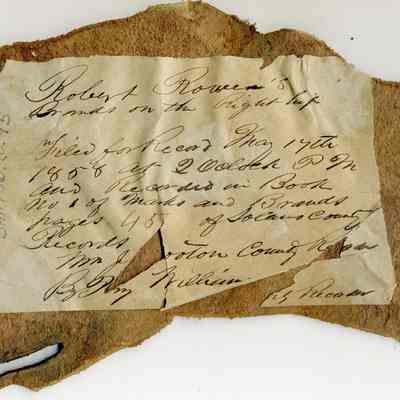 Robert Rowen's
Brands on the right hip
Filed for Record May 17th
1858 at 2 O'Clock P M
and Recorded in Book
No 1 of Marks and Brands
pages 45 of Solano County
Records
Wm J. ooton County Recorder
By Wm William
Dy Recorder